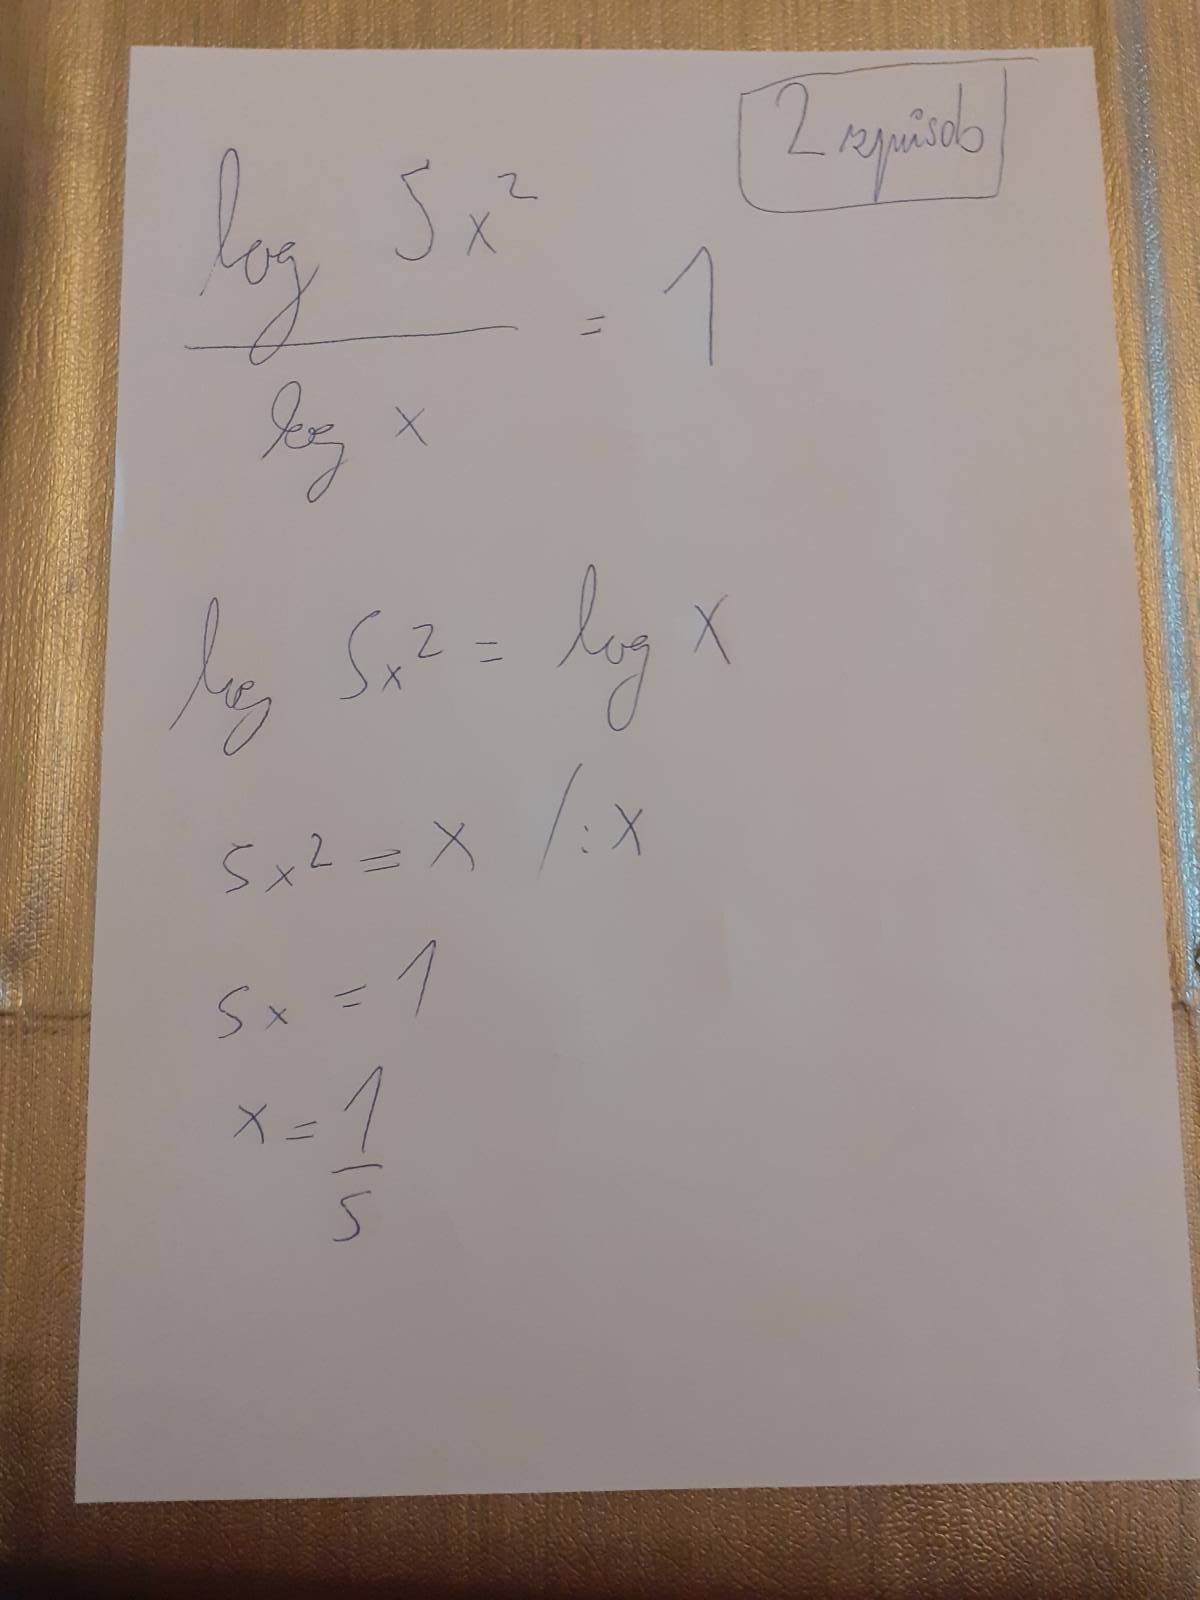 2 způsob
log 5x² / log x = 1
log 5x² = log x
5x² = x /:x
5x = 1
x = 1/5